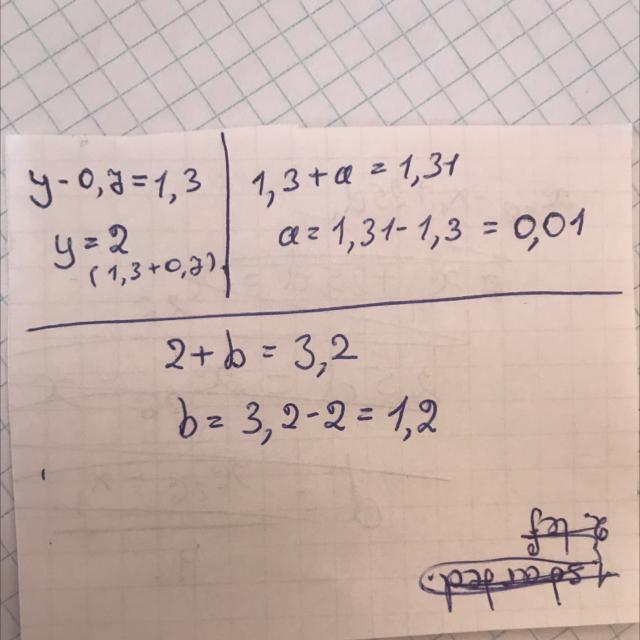 y - 0,7 = 1,3
y = 2
(1,3 + 0,7)
1,3 + a = 1,31
a = 1,31 - 1,3 = 0,01
2 + b = 3,2
b = 3,2 - 2 = 1,2